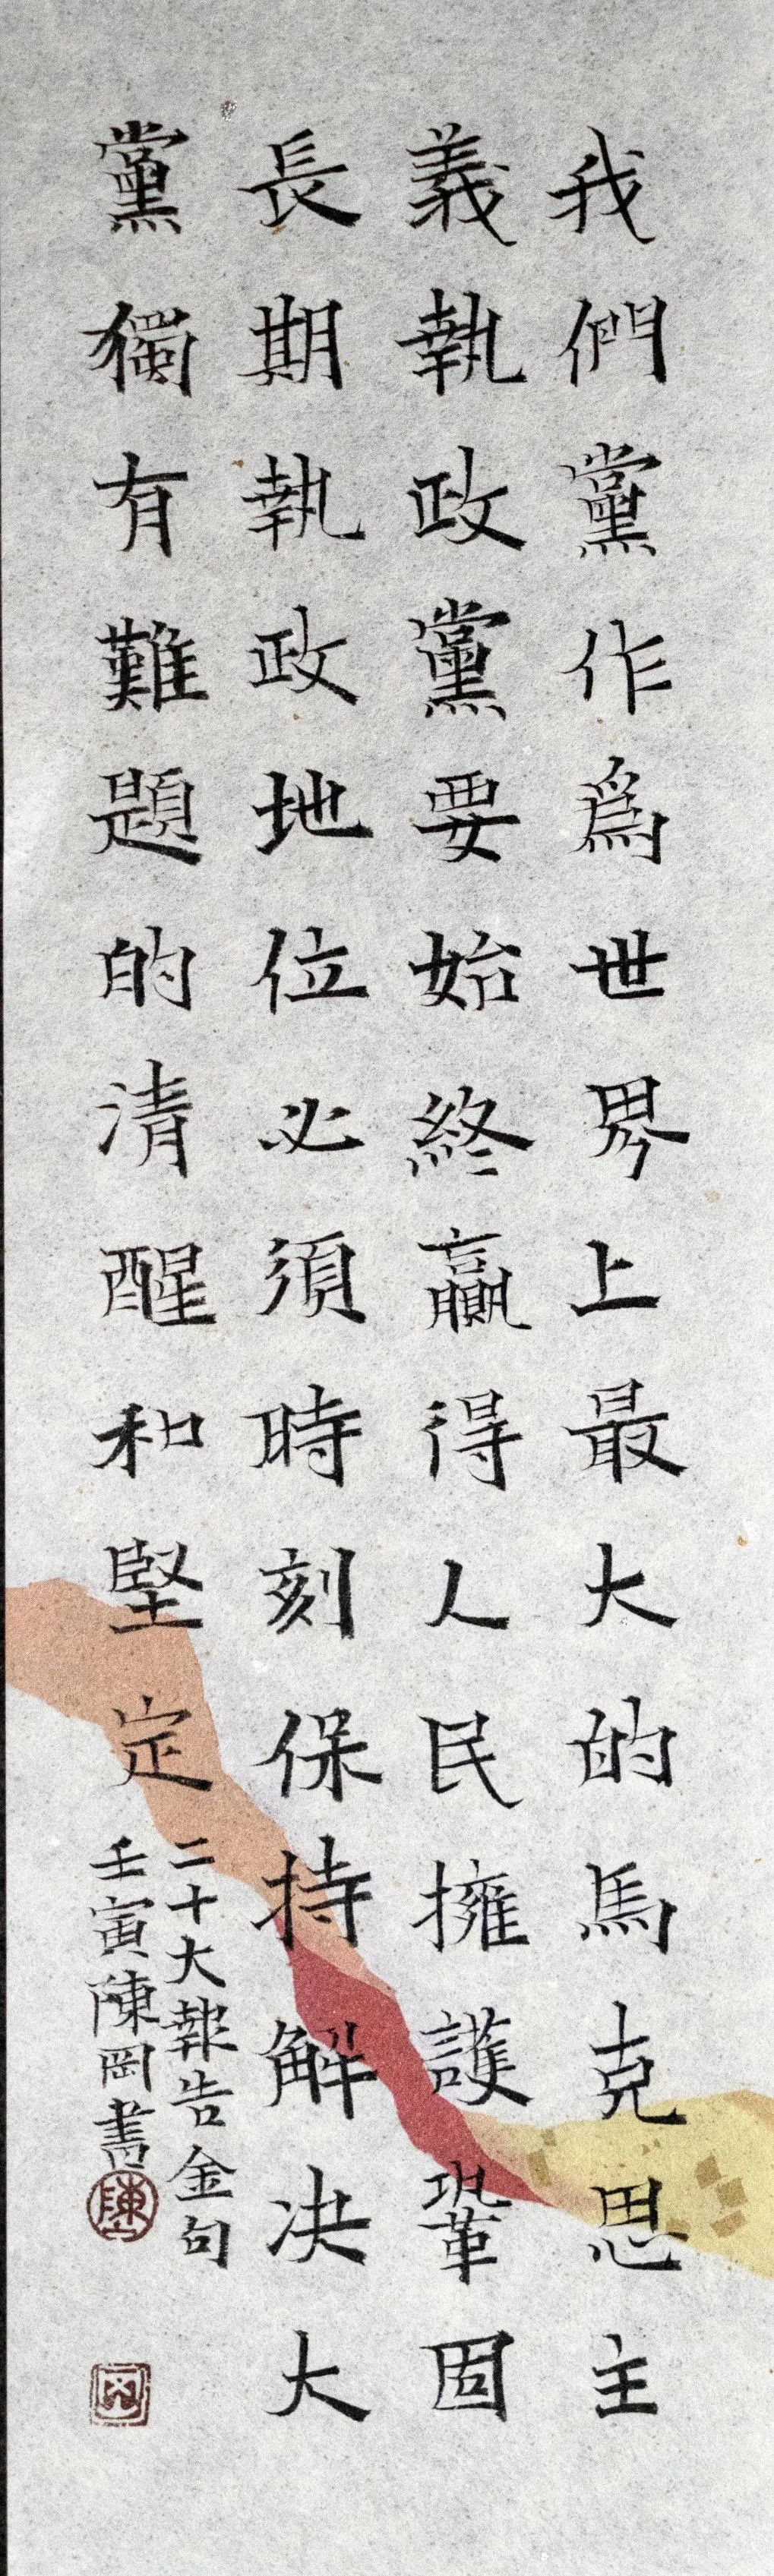 我們黨作爲世界上最大的馬克思主
義執政黨要始終贏得人民擁護鞏固
長期執政地位必須時刻保持解決大
黨獨有難題的清醒和堅定
二十大報告金句
壬寅陳岡書
陳